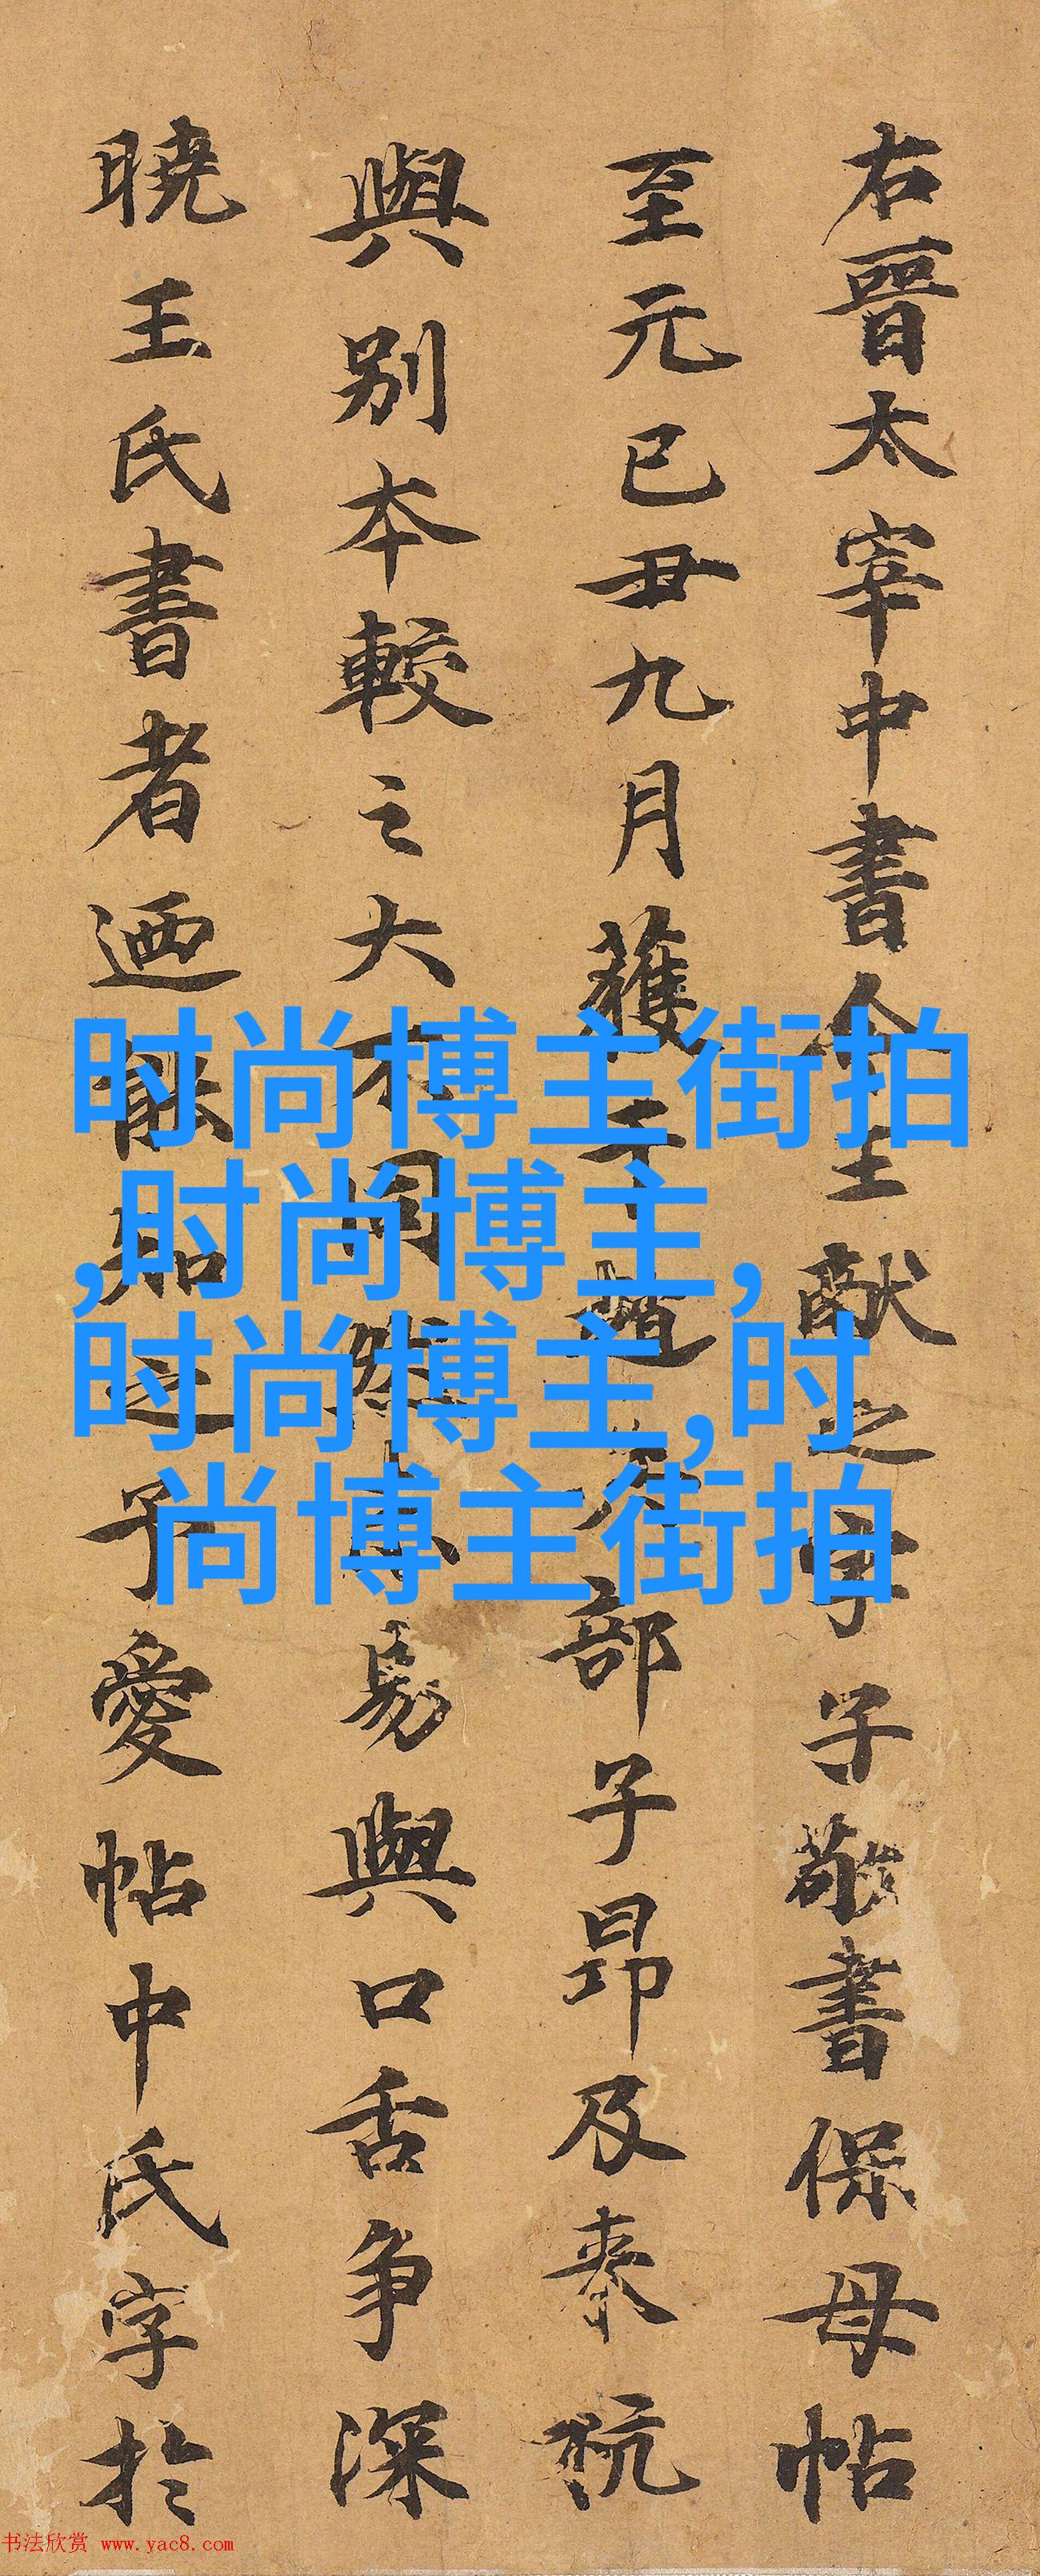 右晉太宰中書令王獻之字子敬書保母帖
至元己丑九月獲于 部子昂及來阮
與别本較之大不同然 易與口舌争深
曉王氏書者迺能知之予愛帖中氏字於
时尚博主街拍
,时尚博主,
时尚博主,时
尚博主街拍
书法欣赏 www.yac8.com